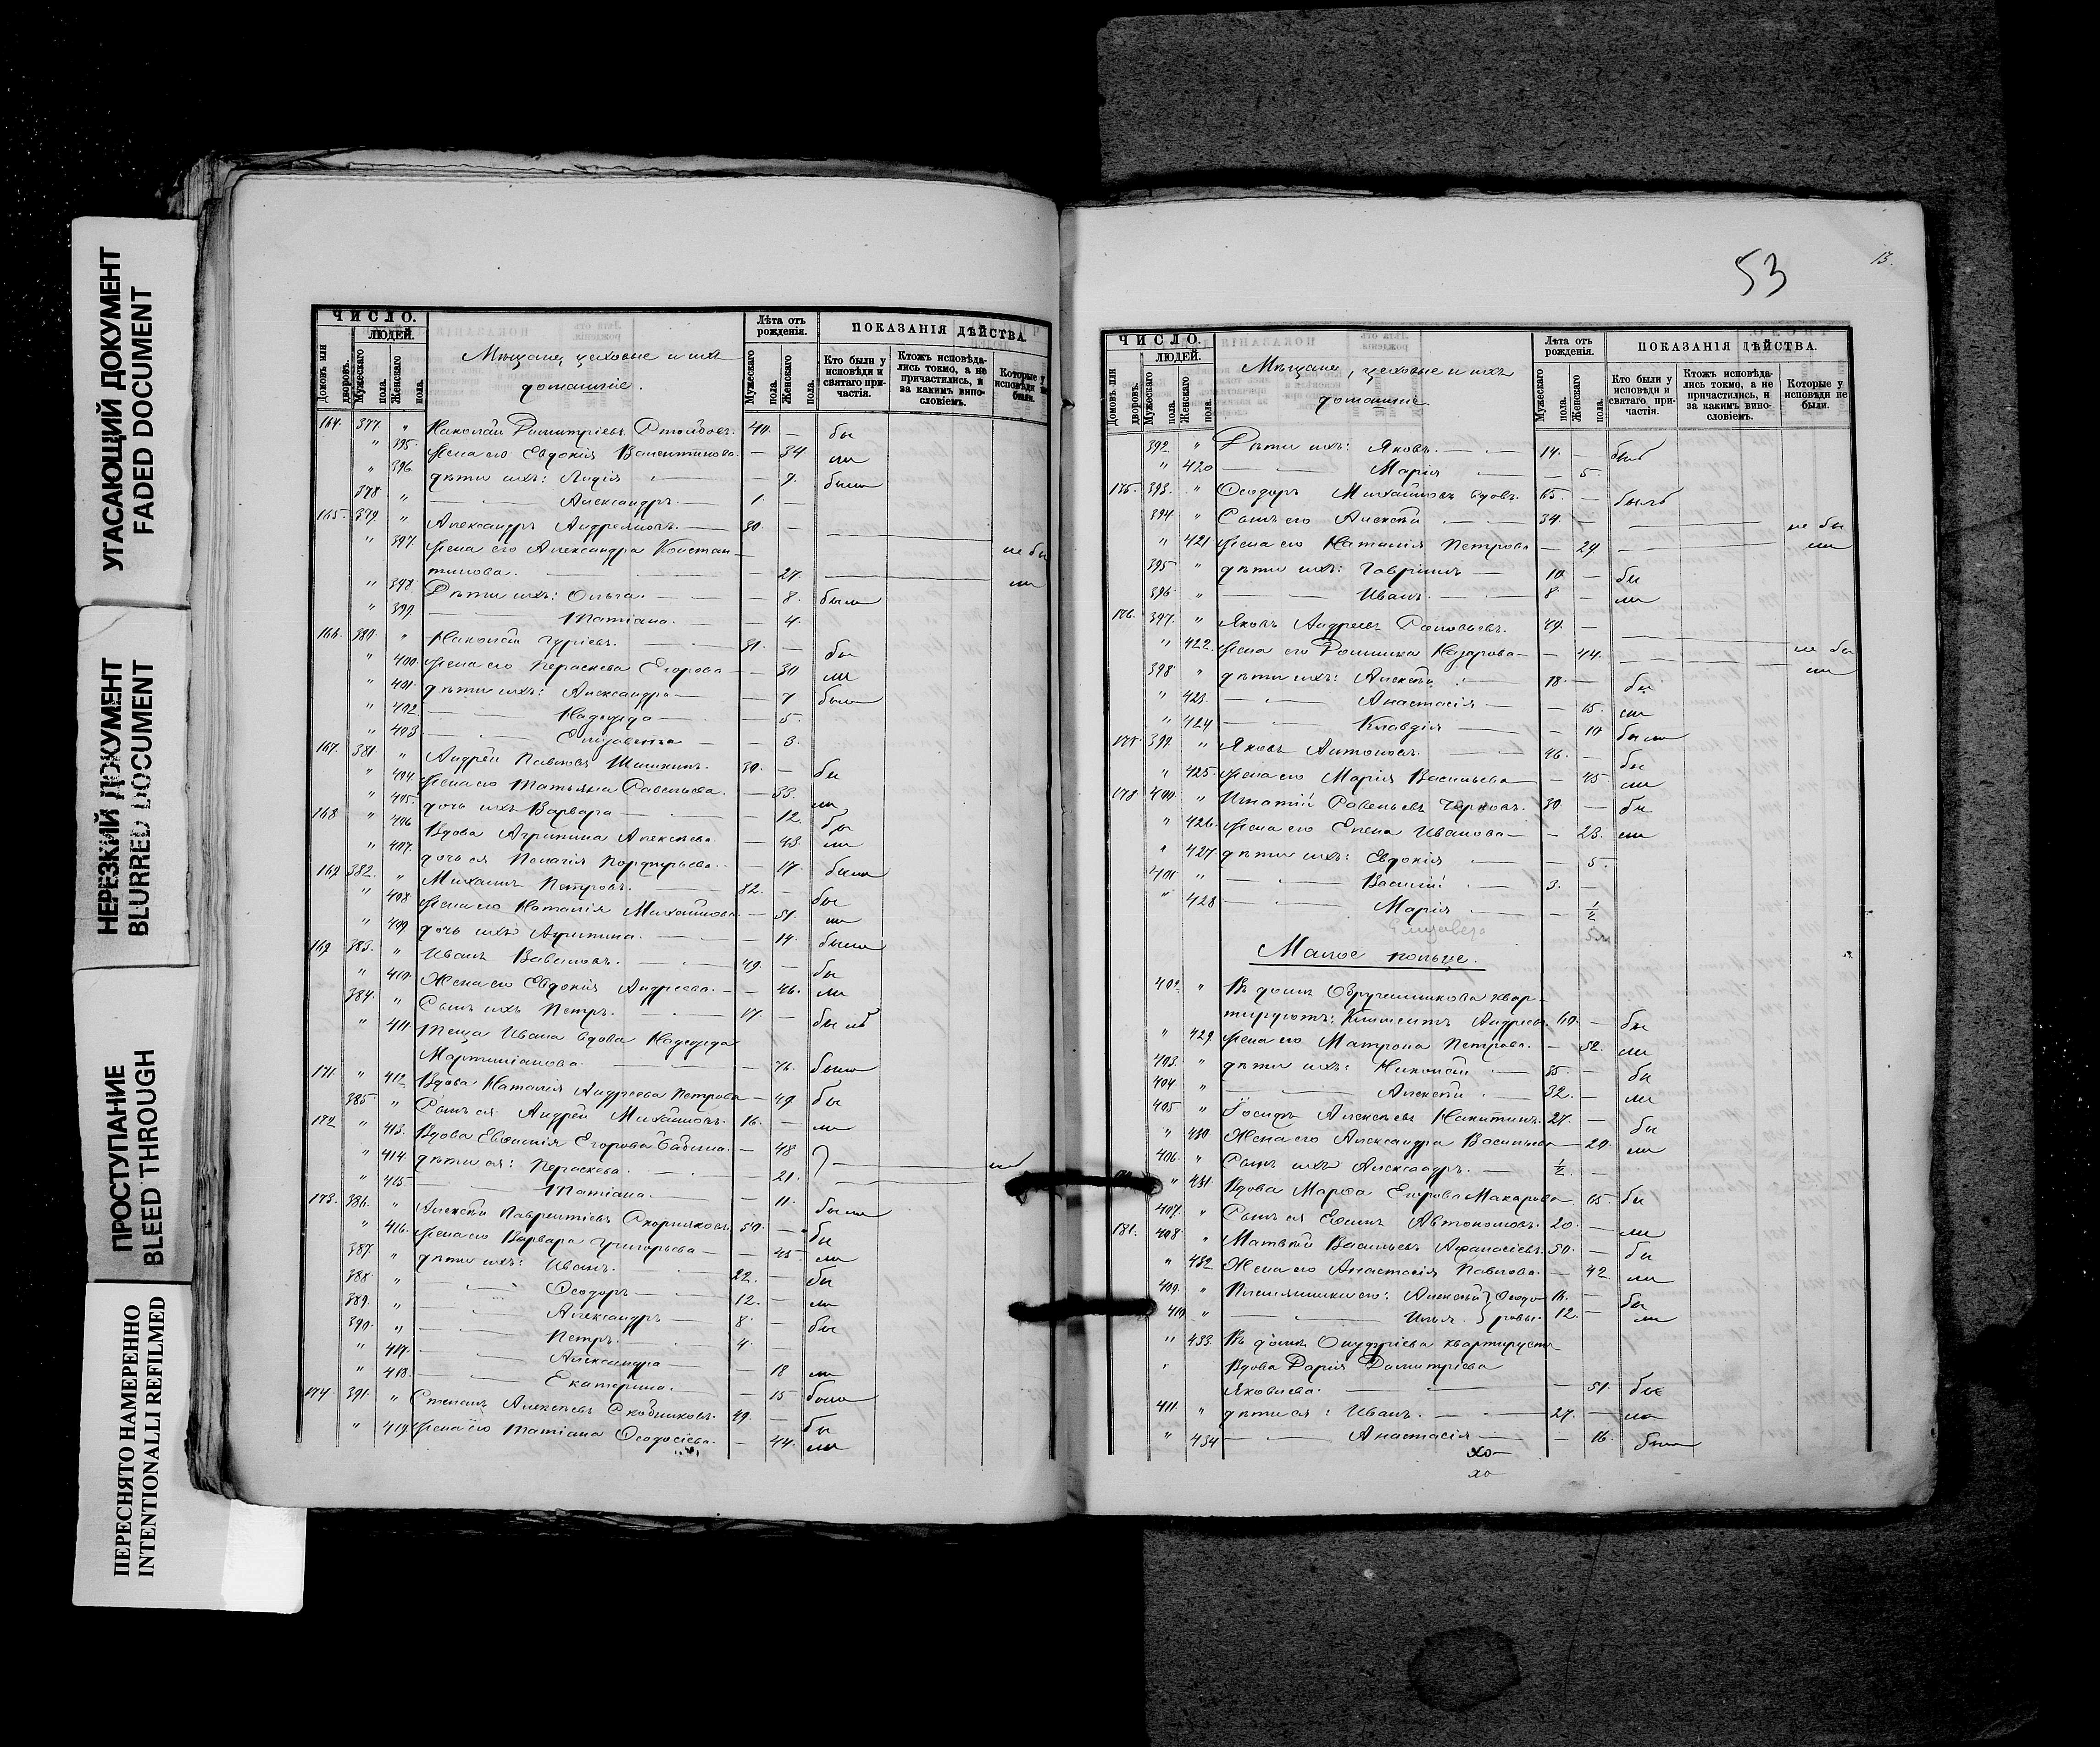 УГАСАЮЩИЙ ДОКУМЕНТ
FADED DOCUMENT
НЕРЕЗКИЙ ДОКУМЕНТ
BLURRED DOCUMENT
ПРОСТУПАНИЕ
BLEED THROUGH
ПЕРЕСНЯТО НАМЕРЕННО
INTENTIONALLI REFILMED
ЧИСЛО.
ЛЮДЕЙ.
Домовъ или дворовъ.
Мужескаго пола.
Женскаго пола.
Мѣщане, цеховые и ихъ
домашніе.
Лѣта отъ рожденія.
Мужескаго пола.
Женскаго пола.
ПОКАЗАНІЯ ДѢЙСТВА
Кто были у исповѣди и святаго причастія.
Ктожъ исповѣдались токмо, а не причастились, и за какимъ винословіемъ.
Которые у исповѣди не были.
164. 377. " Николай Димитріевъ 40. — бы
" 395. Жена его Евдокія Валентинова — 34 ли
" 396. дѣти ихъ: Лидія — 9. была
378 " Александръ 1. —
165. 379. " Александръ Андреяновъ. 30. —
" 397. Жена его Александра Констан- не бы
тинова. — 27. ли
" 398. Дѣти ихъ: Ольга. — 8. были
" 399 Татіана. — 4.
166. 380. " Николай Гуріевъ. 31. — бы
" 400. Жена его Параскева Егорова — 30 ли
" 401. дѣти ихъ: Александра — 7 была
" 402. Надежда — 5.
" 403 Елизавета — 3.
167. 381. " Андрей Павловъ Шишкинъ. 30. — бы
" 404 Жена его Татьяна Савельева. — 33. ли
" 405. дочь ихъ Варвара — 12.
168 " 406 Вдова Агрипина Алексѣева — 43. бы
" 407. дочь ея Пелагія Порфирьева. — 17. ли
169 382. " Михаилъ Петровъ. 52. — бы
" 408 Жена его Наталія Михайлова — 51. ли
" 409 дочь ихъ Агрипина. — 14. была
169 383. " Иванъ Вавиловъ. 49. — бы
" 410. Жена его Евдокія Андреева. — 46. ли
384. " Сынъ ихъ Петръ. 17. — былъ
" 411 Теща Ивана вдова Надежда
Мартиніанова — 76. была
171. " 412 Вдова Наталія Андреева Петрова — 49 бы
385. " Сынъ ея Андрей Михайловъ. 16. — ли
172 " 413. Вдова Евфимія Егорова — 48
" 414. дѣти ея: Параскева. — 21.
" 415 Татіана. — 11.
173. 386. " Алексѣй Лаврентіевъ Скорняковъ 50. — бы
" 416. Жена его Варвара Григорьева — 45 ли
387. " дѣти ихъ: Иванъ. 22. — бы
388. " Ѳеодоръ 12. — ли
389. " Александръ 8. — бы
390. " Петръ 4. —
" 417. Александра — 18 ли
" 418. Екатерина. — 15 была
174. 391. " Степанъ Алексѣевъ 49. — бы
" 419 Жена его Татіана Ѳеодосіева. — 44. ли
53
13.
ЧИСЛО.
ЛЮДЕЙ.
Домовъ или дворовъ.
Мужескаго пола.
Женскаго пола.
Мѣщане, цеховые и ихъ
домашніе.
Лѣта отъ рожденія.
Мужескаго пола.
Женскаго пола.
ПОКАЗАНІЯ ДѢЙСТВА.
Кто были у исповѣди и святаго причастія.
Ктожъ исповѣдались токмо, а не причастились, и за какимъ винословіемъ.
Которые у исповѣди не были.
392 " Дѣти ихъ: Яковъ. 14. — былъ
" 420 Марія — 5
175. 393. " Ѳеодоръ Михайловъ вдовъ. 65. — былъ
394 " Сынъ его Алексѣй 34. — не бы
" 421 Жена его Наталія Петрова — 29 ли
395 " дѣти ихъ: Гавріилъ 10. — бы
396 " Иванъ. 8. — ли
176. 397. " Яковъ Андреевъ 49. — не бы
" 422. Жена его Домника Назарова — 44. ли
398 " дѣти ихъ: Алексѣй 18. — бы
" 423. Анастасія — 15. ли
" 424 Клавдія — 10 была
177. 399. " Яковъ Антоновъ. 46. — бы
" 425. Жена его Марія Васильева — 45 ли
178 400 " Игнатій Савельевъ 30. — бы
" 426. Жена его Елена Иванова — 23. ли
" 427. дѣти ихъ: Евдокія — 5.
401 " Василій 3. —
" 428 Марія — ½
Елизавета 5м
Малое польце.
402 " Въ домѣ Обручникова квар-
тируютъ: Климентъ Андреевъ 60. — бы
" 429 Жена его Матрона Петрова. — 52. ли
403. " дѣти ихъ: Николай 35. — бы
404. " Алексѣй 32. — ли
405 " Іосифъ Алексѣевъ Никитинъ. 27. — бы
" 430 Жена его Александра Васильева — 20. ли
406. " Сынъ ихъ Александръ. ½ —
" 431 Вдова Марѳа Егорова Макарова 65 бы
407. " Сынъ ея Евѳимъ Автономовъ. 20. — ли
180. 408 " Матвѣй Васильевъ Аѳанасіевъ. 50. — бы
" 432 Жена его Анастасія Павлова. — 42. ли
409. " Племянники его: Алексѣй } Ѳеодо 16. — бы
410 " Илья. } ровы. 12. — ли
" 433. Въ домѣ квартируетъ
Вдова Дарія Димитріева
Яковлева. — 51. бы
411. " дѣти ея: Иванъ. 27. — ла
" 434 Анастасія — 16. была